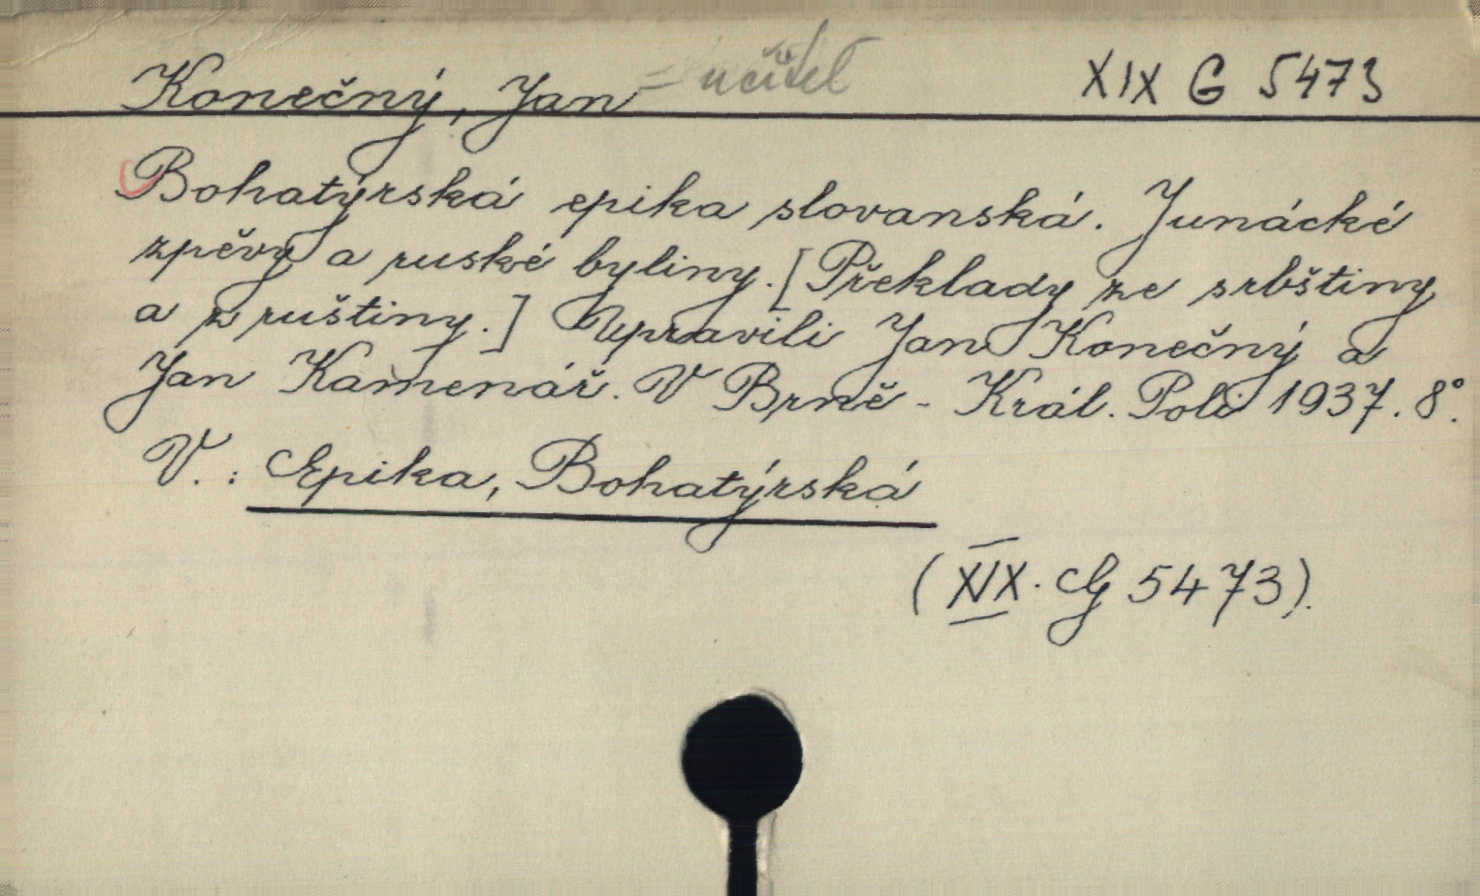 Konečný, Jan = učitel XIX G 5473
Bohatýrská epika slovanská. Junácké
zpěvy a ruské byliny. [Překlady ze srbštiny
a z ruštiny.] Upravili Jan Konečný a
Jan Kamenář. V Brně - Král. Poli 1937. 8°.
V. : Epika, Bohatýrská
(XIX. G 5473).